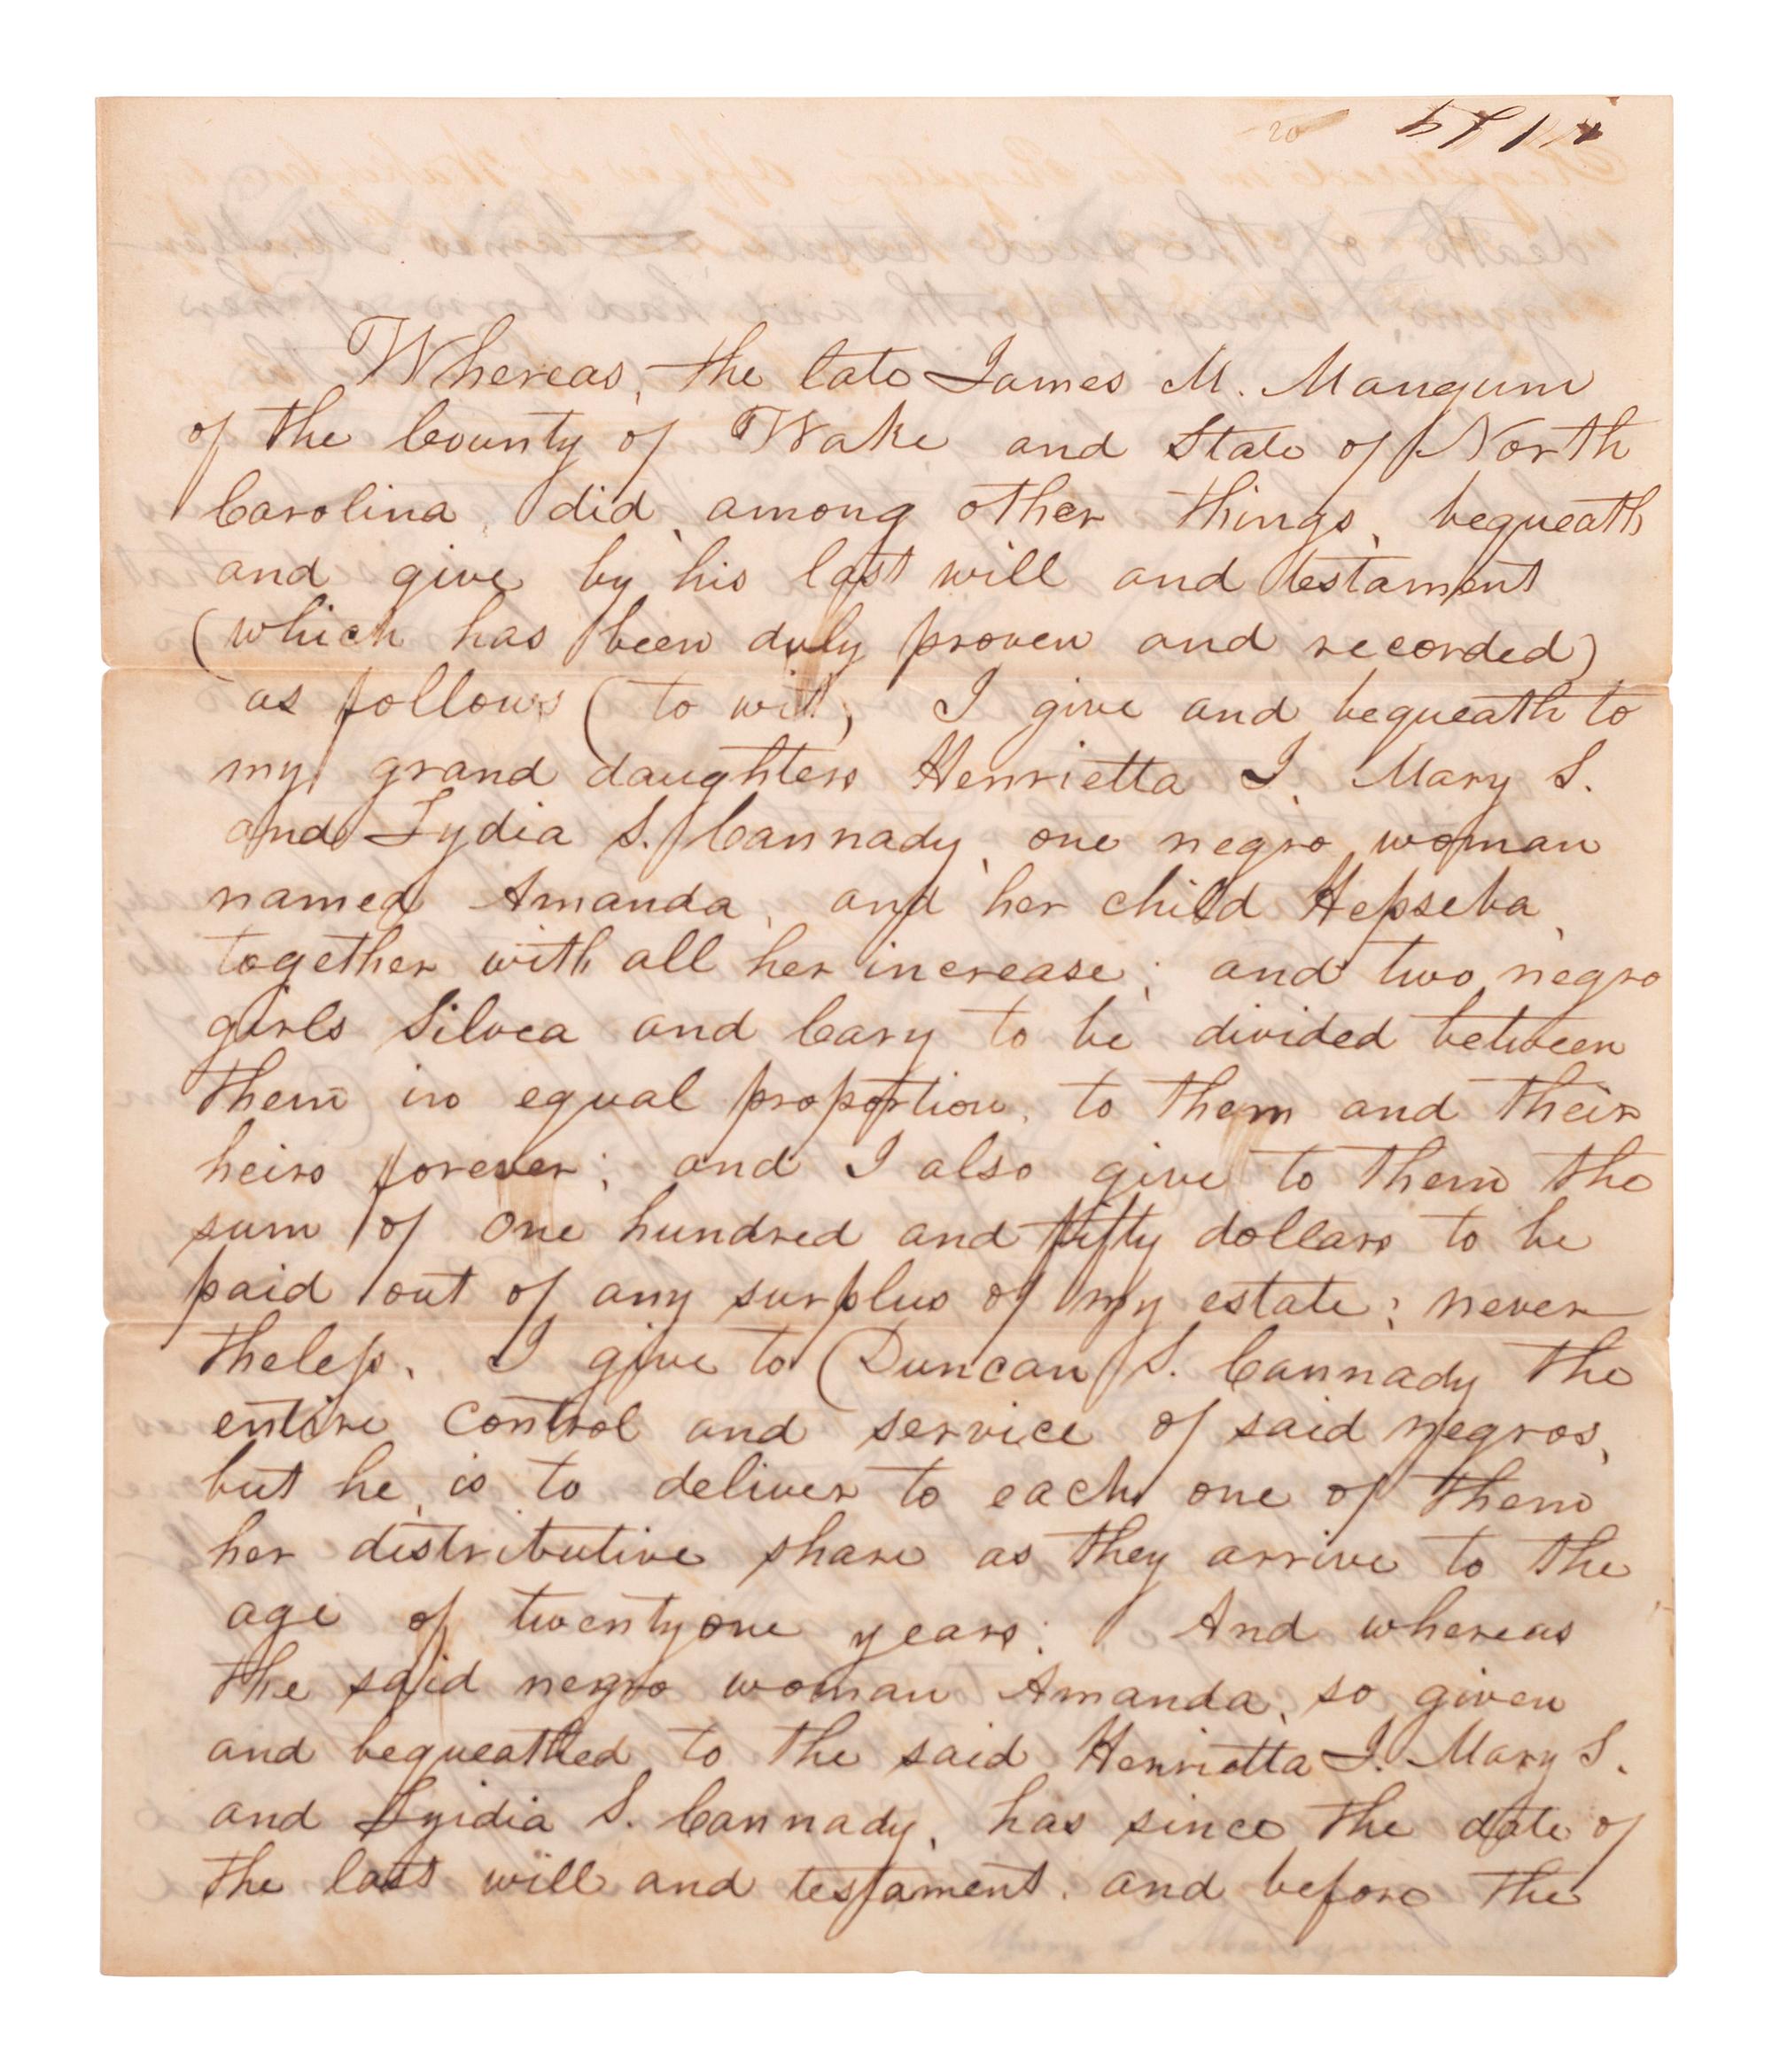 Whereas, the late James M. Mangum
of the County of Wake and State of North
Carolina, did, among other things, bequeath
and give by his last will and testament
(which has been duly proven and recorded)
as follows (to wit, I give and bequeath to
my grand daughters Henrietta J. Mary S.
and Lydia S. Cannady, one negro woman
named Amanda, and her child Hepseba,
together with all her increase; and two negro
girls Silvea and Cary to be divided between
them in equal proportion, to them and their
heirs forever; and I also give to them the
sum of one hundred and fifty dollars to be
paid out of any surplus of my estate; never
theless, I give to Duncan S. Cannady the
entire control and service of said negros,
but he is to deliver to each one of them
her distributive share as they arrive to the
age of twentyone years: And whereas
the said negro woman Amanda, so given
and bequeathed to the said Henrietta J. Mary S.
and Lyidia S. Cannady, has since the date of
the last will and testament, and before the